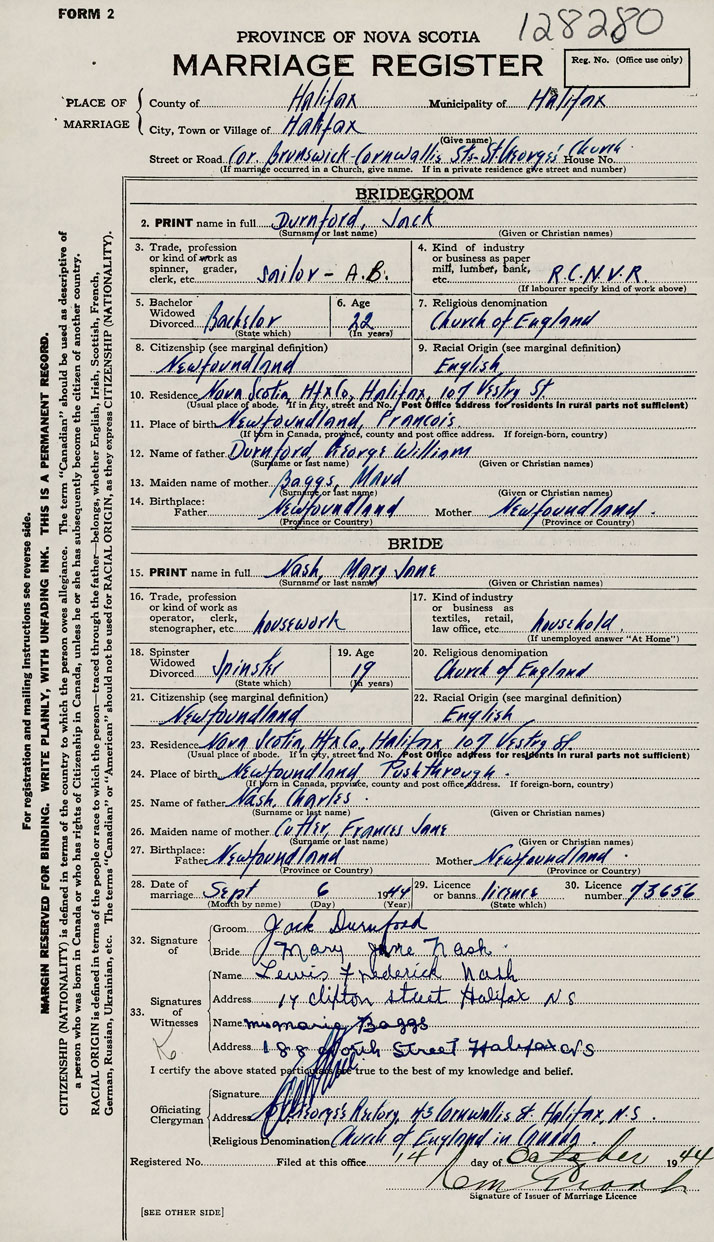 FORM 2
128280
PROVINCE OF NOVA SCOTIA
MARRIAGE REGISTER
Reg. No. (Office use only)
PLACE OF MARRIAGE
County of Halifax Municipality of Halifax
City, Town or Village of Halifax
(Give name)
Street or Road Cor. Brunswick-Cornwallis Sts-St Georges' Church House No.
(If marriage occurred in a Church, give name. If in a private residence give street and number)
BRIDEGROOM
2. PRINT name in full Durnford, Jack
(Surname or last name) (Given or Christian names)
3. Trade, profession or kind of work as spinner, grader, clerk, etc. sailor - A.B.
4. Kind of industry or business as paper mill, lumber, bank, etc. R.C.N.V.R.
(If labourer specify kind of work above)
5. Bachelor Widowed Divorced Bachelor
(State which)
6. Age 22
(In years)
7. Religious denomination
Church of England
8. Citizenship (see marginal definition)
Newfoundland
9. Racial Origin (see marginal definition)
English
10. Residence Nova Scotia, Hfx Co, Halifax, 107 Vestry St.
(Usual place of abode. If in city, street and No. Post Office address for residents in rural parts not sufficient)
11. Place of birth Newfoundland, Francois.
(If born in Canada, province, county and post office address. If foreign-born, country)
12. Name of father Durnford, George William
(Surname or last name) (Given or Christian names)
13. Maiden name of mother Baggs, Maud
(Surname or last name) (Given or Christian names)
14. Birthplace: Father Newfoundland Mother Newfoundland.
(Province or Country) (Province or Country)
BRIDE
15. PRINT name in full Nash, Mary Jane
(Surname or last name) (Given or Christian names)
16. Trade, profession or kind of work as operator, clerk, stenographer, etc. housework
17. Kind of industry or business as textiles, retail, law office, etc. household.
(If unemployed answer "At Home")
18. Spinster Widowed Divorced Spinster
(State which)
19. Age 19
(In years)
20. Religious denomination
Church of England
21. Citizenship (see marginal definition)
Newfoundland
22. Racial Origin (see marginal definition)
English
23. Residence Nova Scotia, Hfx Co, Halifax 107 Vestry St.
(Usual place of abode. If in city, street and No. Post Office address for residents in rural parts not sufficient)
24. Place of birth Newfoundland Pushthrough.
(If born in Canada, province, county and post office address. If foreign-born, country)
25. Name of father Nash, Charles.
(Surname or last name) (Given or Christian names)
26. Maiden name of mother Cutler, Frances Jane
(Surname or last name) (Given or Christian names)
27. Birthplace: Father Newfoundland Mother Newfoundland.
(Province or Country) (Province or Country)
28. Date of marriage Sept 6 1944
(Month by name) (Day) (Year)
29. Licence or banns licence
(State which)
30. Licence number 73656
32. Signature of
Groom Jack Durnford
Bride Mary Jane Nash.
33. Signatures of Witnesses
Name Lewis Frederick Nash
Address 14 clifton street Halifax N S
Name mrs marie Baggs
Address 188 North Street Halifax NS
I certify the above stated particulars are true to the best of my knowledge and belief.
Officiating Clergyman
Signature
Address St Georges Rectory, 43 Cornwallis St. Halifax, N.S.
Religious Denomination Church of England in Canada.
Registered No. Filed at this office 14 day of October 1944
Signature of Issuer of Marriage Licence
[SEE OTHER SIDE]
For registration and mailing instructions see reverse side.
MARGIN RESERVED FOR BINDING. WRITE PLAINLY, WITH UNFADING INK. THIS IS A PERMANENT RECORD.
CITIZENSHIP (NATIONALITY) is defined in terms of the country to which the person owes allegiance. The term "Canadian" should be used as descriptive of
a person who was born in Canada or who has rights of Citizenship in Canada, unless he or she has subsequently become the citizen of another country.
RACIAL ORIGIN is defined in terms of the people or race to which the person—traced through the father—belongs, whether English, Irish, Scottish, French,
German, Russian, Ukrainian, etc. The terms "Canadian" or "American" should not be used for RACIAL ORIGIN, as they express CITIZENSHIP (NATIONALITY).